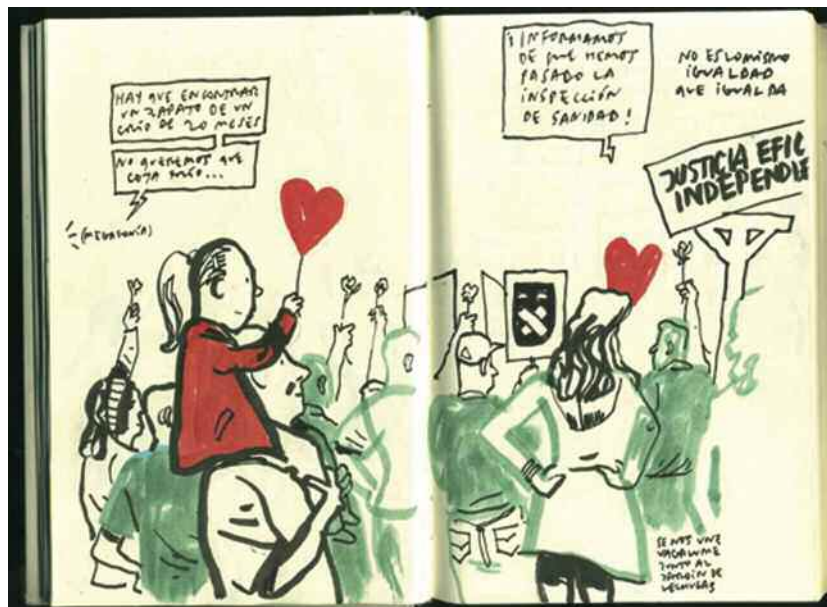 HAY QUE ENCONTRAR
UN ZAPATO DE UN
CRÍO DE 20 MESES
NO QUEREMOS QUE
COJA FRÍO...
(MEGAFONÍA)
¡INFORMAMOS
DE QUE HEMOS
PASADO LA
INSPECCIÓN
DE SANIDAD!
NO ES LO MISMO
IGUALDAD
QUE IGUALDA
JUSTICIA EFIC
INDEPENDIE
SE NOS UNE
JUNTO AL
JARDÍN DE
LECHUGAS